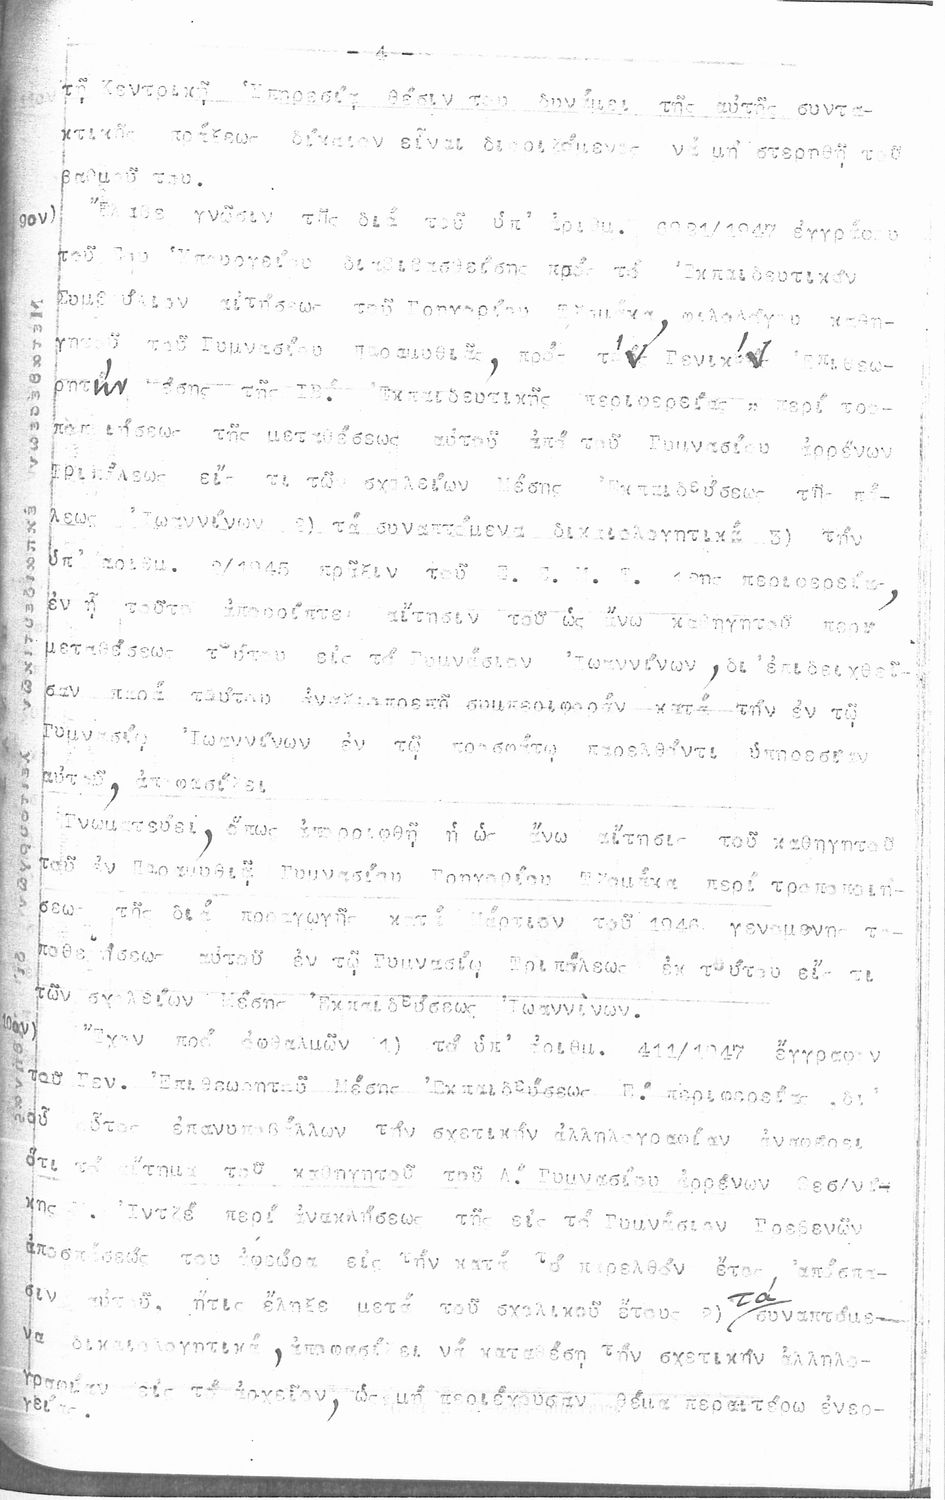 - 4 -
τῇ Κεντρικῇ Ὑπηρεσίᾳ θέσιν του δυνάμει τῆς αὐτῆς συντα-
κτικῆς πράξεως δίκαιον εἶναι διοριζόμενος νά μή στερηθῇ τοῦ
βαθμοῦ του.
9ον) Ἔλαβε γνῶσιν τῆς διά τοῦ ὑπ' ἀριθμ. /1947 ἐγγράφου
τοῦ Ὑπουργείου διαβιβασθείσης πρός τό Ἐκπαιδευτικόν
Συμβούλιον αἰτήσεως τοῦ Γρηγορίου φιλολόγου καθη-
γητοῦ τοῦ Γυμνασίου Παραμυθιᾶς, πρός τόν Γενικόν Ἐπιθεω-
ρητήν Μέσης τῆς ΙΒ΄. Ἐκπαιδευτικῆς περιφερείας περί τρο-
ποποιήσεως τῆς μεταθέσεως αὐτοῦ ἀπό τοῦ Γυμνασίου ἀρρένων
Τριπόλεως εἴς τι τῶν σχολείων Μέσης Ἐκπαιδεύσεως τῆς πό-
λεως Ἰωαννίνων 2) τά συναπτόμενα δικαιολογητικά 3) τήν
ὑπ' ἀριθμ. /1945 πρᾶξιν τοῦ περιφερείας,
ἐν ᾗ τοῦτο ἀπορρίπτει αἴτησιν τοῦ ὡς ἄνω καθηγητοῦ περί
μεταθέσεως τούτου εἰς τό Γυμνάσιον Ἰωαννίνων, δι' ἐπιδειχθεῖ-
σαν παρά τούτου ἀναξιοπρεπῆ συμπεριφοράν κατά τήν ἐν τῷ
Γυμνασίῳ Ἰωαννίνων ἐν τῷ προσφάτῳ παρελθόντι ὑπηρεσίαν
αὐτοῦ, ἀποφασίζει
Γνωματεύει, ὅπως ἀπορριφθῇ ἡ ὡς ἄνω αἴτησις τοῦ καθηγητοῦ
τοῦ ἐν Παραμυθιᾷ Γυμνασίου Γρηγορίου περί τροποποιή-
σεως τῆς διά προαγωγῆς κατά Μάρτιον τοῦ 1946 γενομένης το-
ποθετήσεως αὐτοῦ ἐν τῷ Γυμνασίῳ Τριπόλεως ἐκ τούτου εἴς τι
τῶν σχολείων Μέσης Ἐκπαιδεύσεως Ἰωαννίνων.
10ον) Ἔχον πρό ὀφθαλμῶν 1) τό ὑπ' ἀριθμ. 411/1947 ἔγγραφον
τοῦ Γεν. Ἐπιθεωρητοῦ Μέσης Ἐκπαιδεύσεως περιφερείας δι'
οὗ οὗτος ἐπανυποβάλλων τήν σχετικήν ἀλληλογραφίαν ἀναφέρει
ὅτι τό αἴτημα τοῦ καθηγητοῦ τοῦ Α΄ Γυμνασίου ἀρρένων Θεσ/νί-
κης Ἰντζέ περί ἀνακλήσεως τῆς εἰς τό Γυμνάσιον Γρεβενῶν
ἀποσπάσεώς του ἀφεώρα εἰς τήν κατά τό παρελθόν ἔτος ἀπόσπα-
σιν αὐτοῦ, ἥτις ἔληξε μετά τοῦ σχολικοῦ ἔτους 2) τά συναπτόμε-
να δικαιολογητικά, ἀποφασίζει νά καταθέσῃ τήν σχετικήν ἀλληλο-
γραφίαν εἰς τό ἀρχεῖον, ὡς μή περιέχουσαν θέμα περαιτέρω ἐνερ-
γείας.